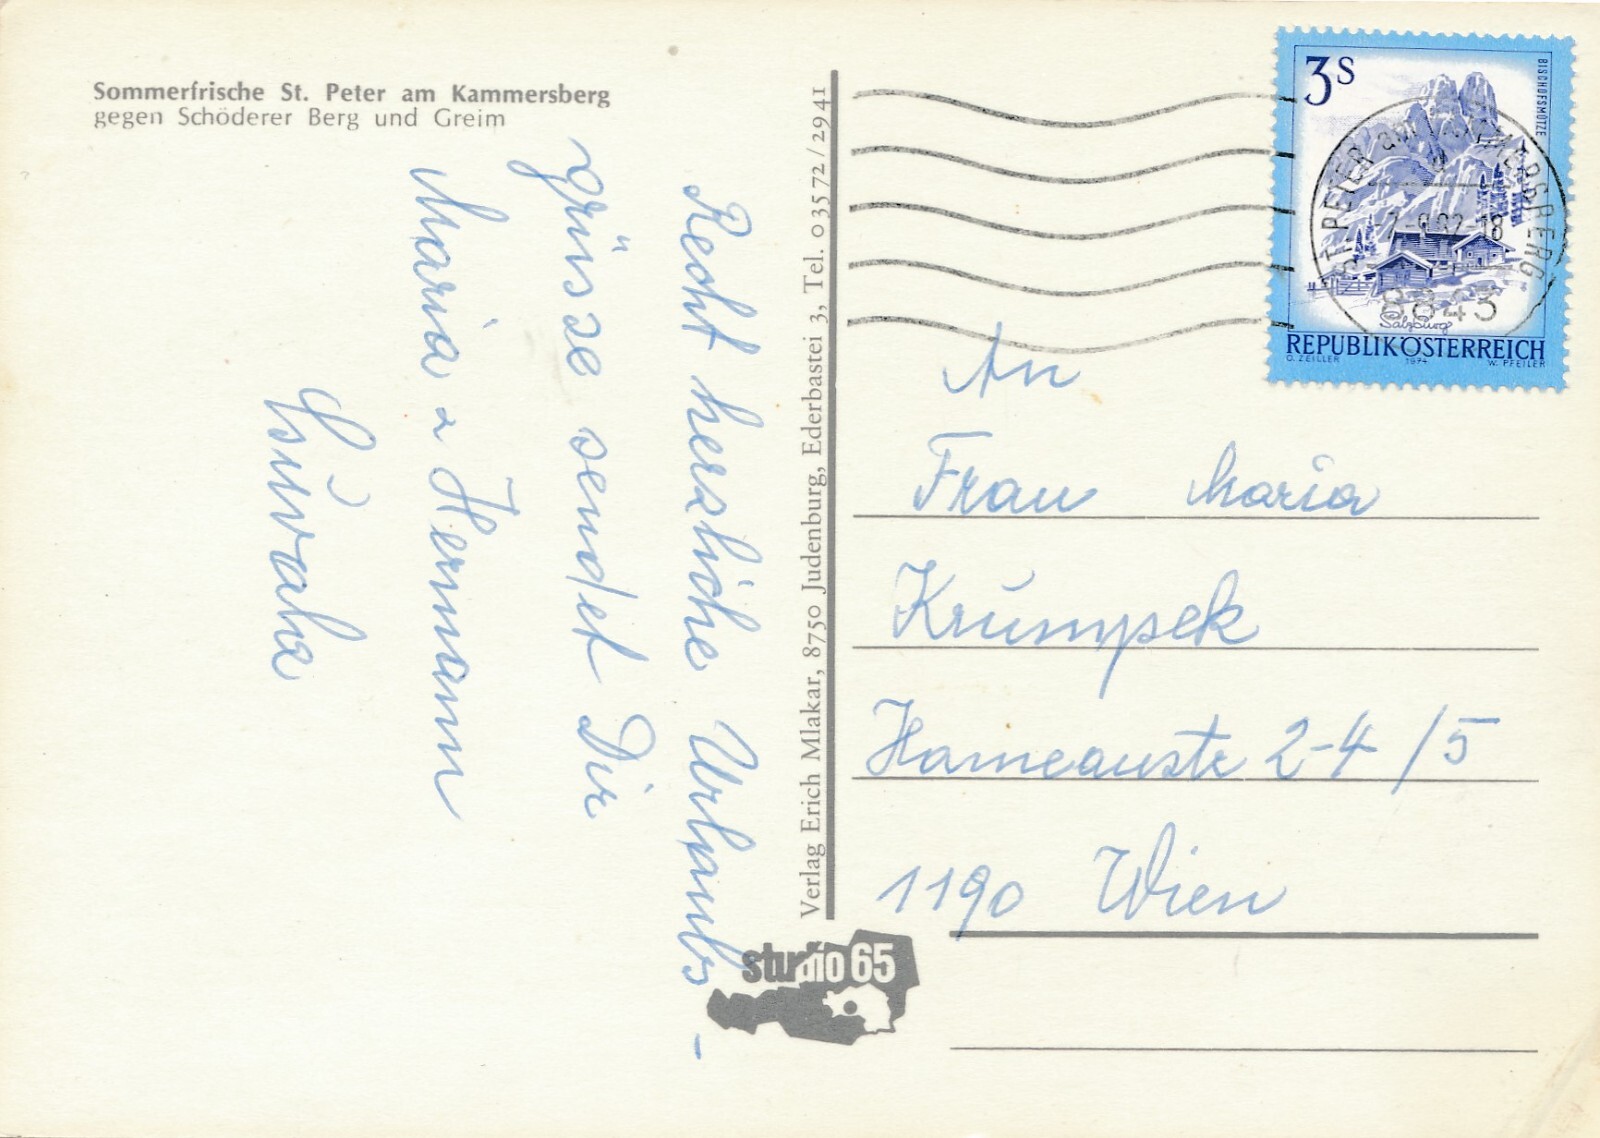 Sommerfrische St. Peter am Kammersberg
gegen Schöderer Berg und Greim
Recht herzliche Urlaubs-
grüsse sendet Dir
Maria u Hermann
Verlag Erich Mlakar, 8750 Judenburg, Ederbastei 3, Tel. 03572/2941
studio 65
3S
BISCHOFSMÜTZE
Salzburg
REPUBLIK ÖSTERREICH
O. ZEILLER 1974 W. PFEILER
ST. PETER am KAMMERSBERG
8843
An
Frau Maria
Krumpek
Hameaustr 2-4/5
1190 Wien